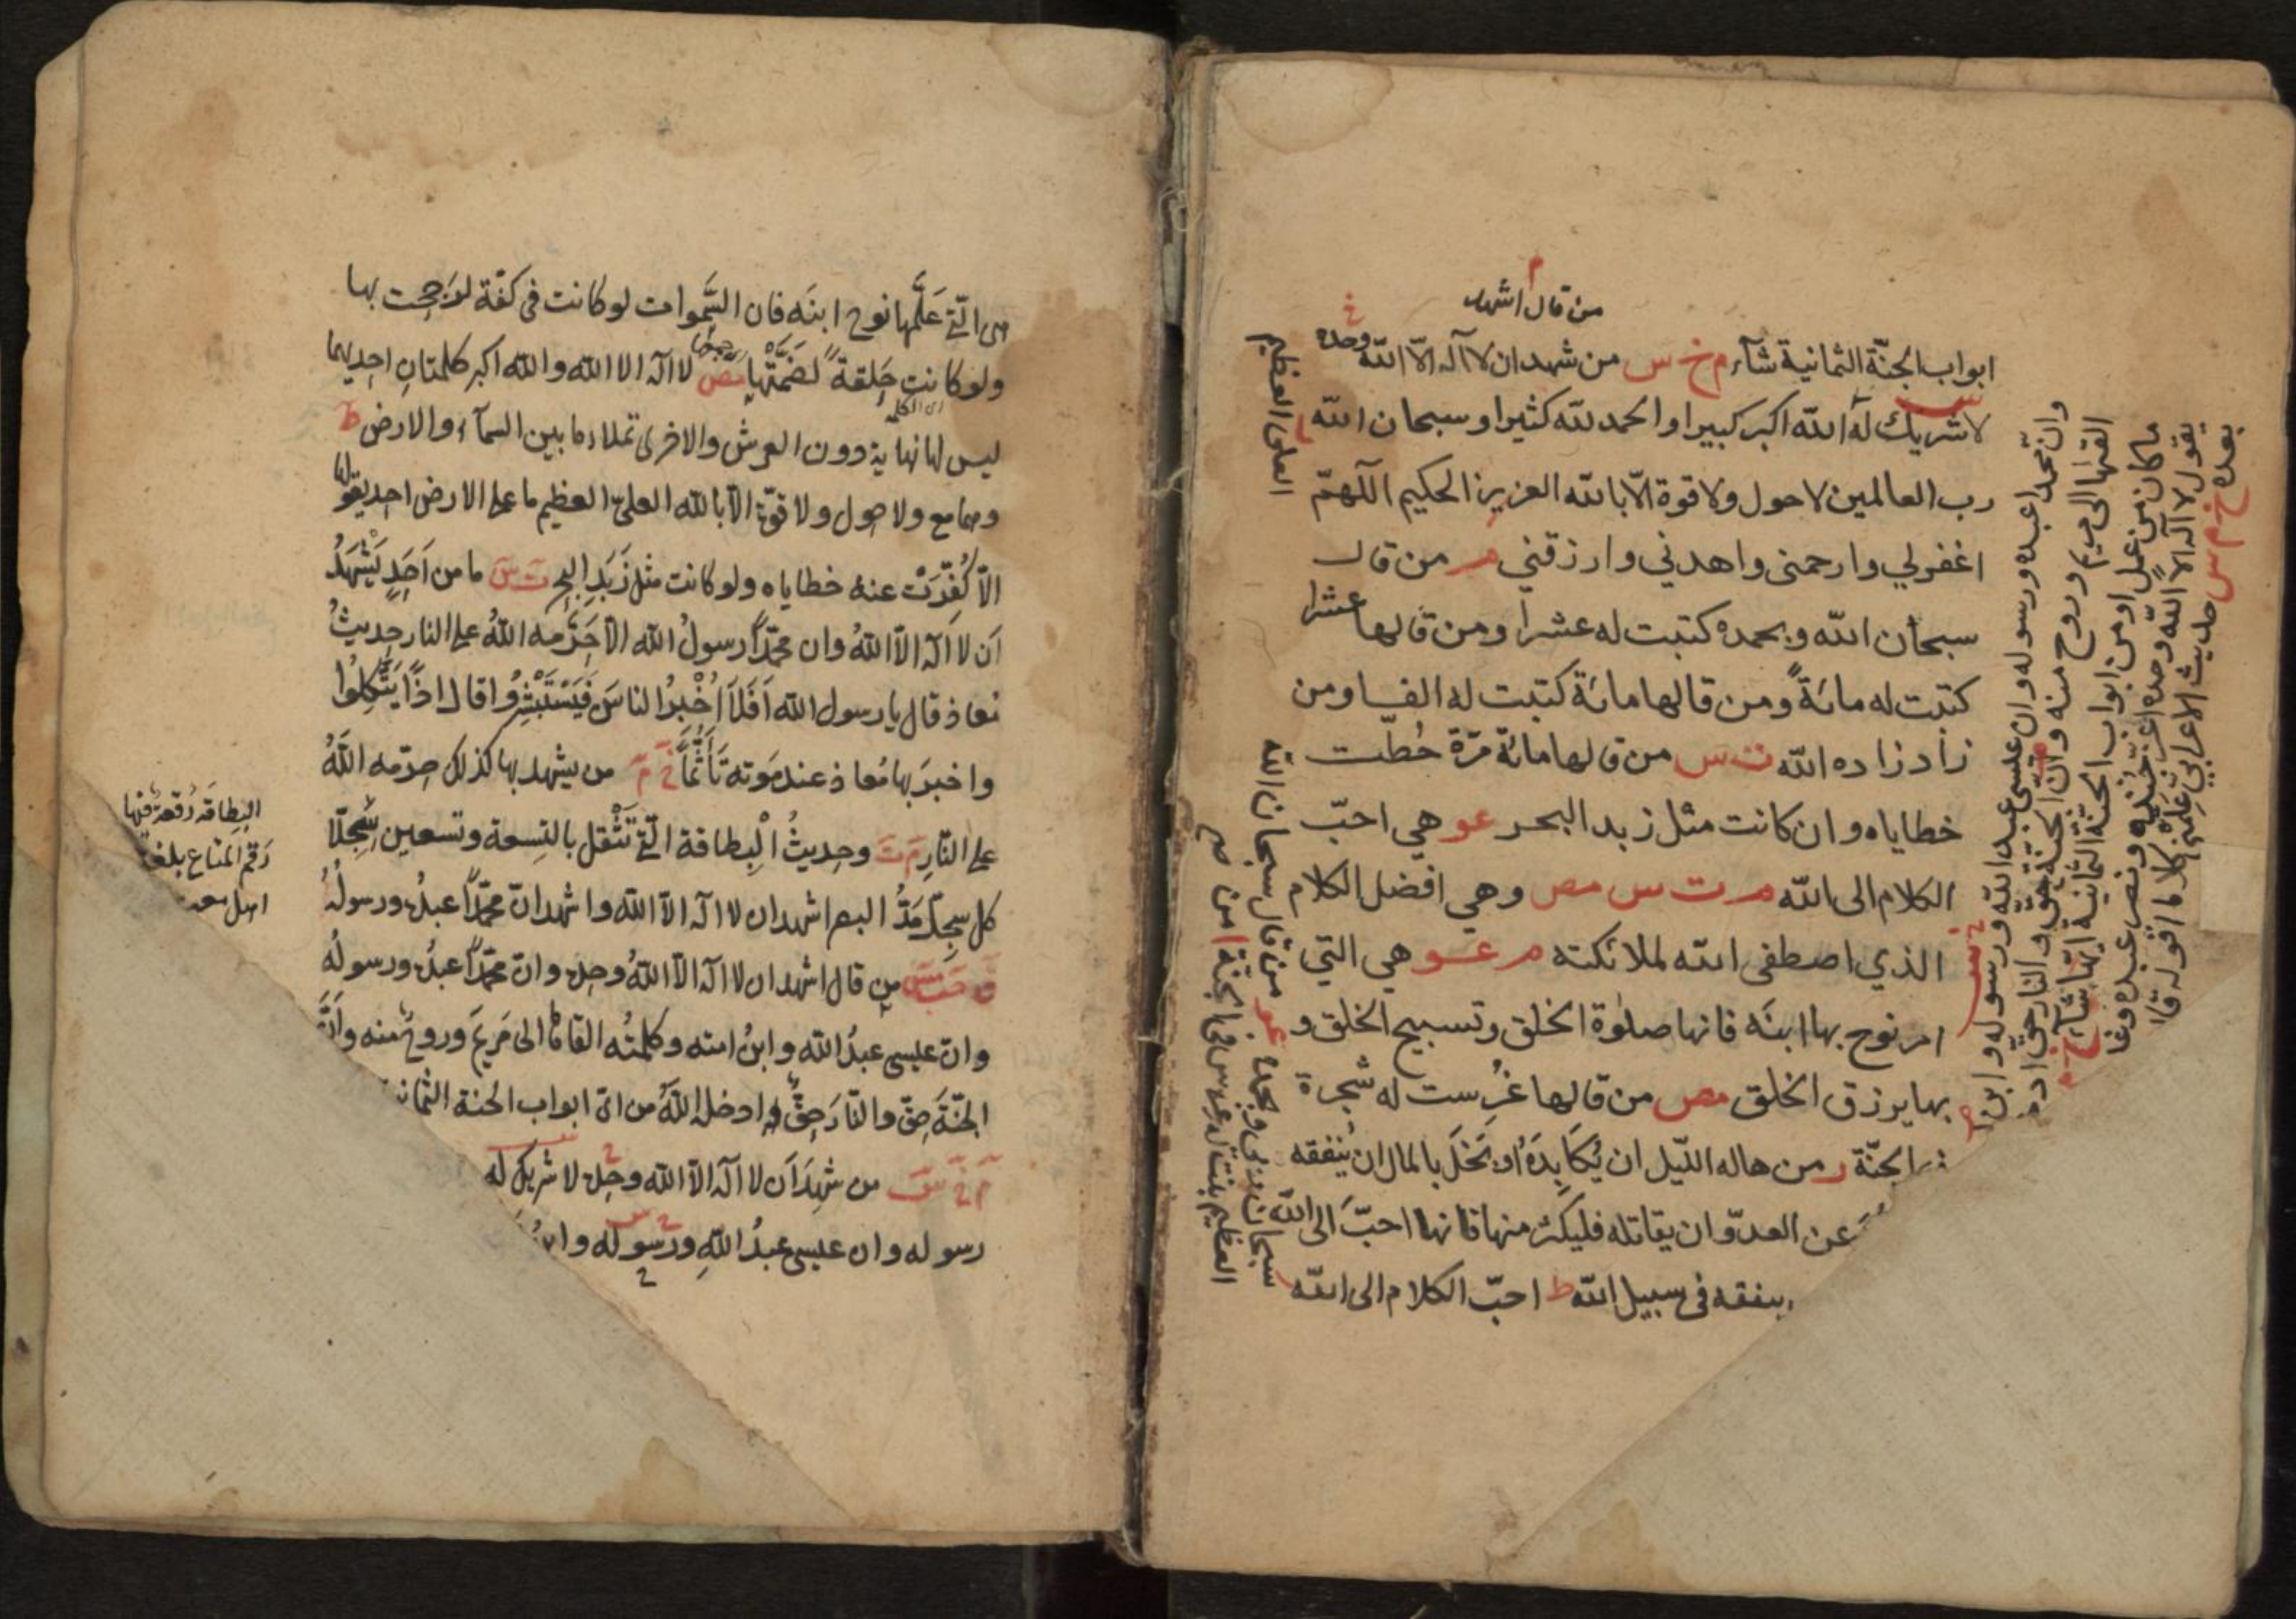 من قال اشهد
ابواب الجنّة الثمانية شآء م خ س من شهد ان لا آله الّا اللّه وحده
لا شريك له اللّه اكبر كبيرا والحمد للّه كثيرا وسبحان اللّه
رب العالمين لا حول ولا قوة الّا باللّه العزيز الحكيم اللّهمّ
اغفرلي وارحمنى واهدني وارزقني م من قال
سبحان اللّه وبحمده كتبت له عشرا ومن قالها عشرا
كتبت له مائةً ومن قالها مائة كتبت له الفا ومن
زاد زاده اللّه ت س من قالها مائة مرّة حُطّت
خطاياه وان كانت مثل زبد البحر عو هي احبّ
الكلام الى اللّه م ت س مص وهي افضل الكلام
الذي اصطفى اللّه لملائكته م عو هي التي
امر نوح بها ابنَه فانها صلوٰة الخلق وتسبيح الخلق و
بها يرزق الخلق مص من قالها غُرِست له شجرة
الجنّة ر من هاله اللّيل ان يُكَابِدَهُ او بَخَلَ بالمال ان يُنفقه
عن العدوّ ان يقاتله فليكثر منها فانها احبّ الى اللّه
ينفقه فى سبيل اللّه ط احبّ الكلام الى اللّه
العلى العظيم
سبحان ربى وبحمده عو من قال سبحان اللّه
العظيم نبت له غرس فى الجنّة
وانّ محمدا عبده ورسوله وان عيسى عبد اللّه ورسوله وابن
القٰها الى مريم وروح منه وانّ الجنة حقّ والنار حقّ
ما كان من عمل او من ابواب الجنّة الثمانية ايّها شآء
يقول لا آله الا اللّه وحده اعزّ جنده ونصر عبده
بعده خ م س حديث الاعرابي علّمني كلاما اقوله
هى الّتى عَلَّمها نوح ابنَه فان السَّموات لو كانت فى كفّة لرَجحت بها
ولو كانت حَلقةً لَضَمَّتْها مص لا اله الا الله والله اكبر كلمتان احديهما
ليس لها نهاية دون العرش والاخرى تملاء ما بين السمآء والارض ط
وهما مع ولا حول ولا قوّة الّا بالله العلىّ العظيم ما على الارض احد يقولها
الّا كُفِّرَتْ عنه خطاياه ولو كانت مثل زَبَدِ البحر ت س ما من اَحَدٍ يَشْهَدُ
اَن لا آله الّا اللهُ وان محمّدًا رسولُ الله الّا حَرَّمه اللهُ على النار حديثُ
معاذ قال يا رسول الله اَفَلَا اُخْبِرُ الناسَ فَيَسْتَبْشِرُوا قال اذًا يَتَّكِلُوا
واخبرَ بها مُعاذ عند مَوته تَأَثُّمًا خ م من يشهد بها كذلك حرّمه اللهُ
على النّارِ م ت وحديثُ الْبِطاقة الّتى تَثْقُل بالتِسعة وتسعين سِجِلّا
كل سِجِلّ مَدُّ البصر اشهد ان لا آله الّا الله واشهد انّ محمّدًا عبدُه ورسولُهُ
ق حب مس من قال اشهد ان لا آله الّا اللهُ وحده وانّ محمّدًا عبدُه ورسولُه
وانّ عيسى عبدُ الله وابنُ امته وكلمتُه القاها الى مَريمَ وروحٌ منه وانَّ
الجنّةَ حقّ والنّارَ حقٌّ ادخله اللهُ من اىّ ابواب الجنة الثمانية
م خ س من شَهِدَ اَن لا آله الّا الله وحده لا شريك له
رسوله وان عيسى عبدُ اللهِ ورسوله
البِطاقة رُقعةٌ فيها
رَقم المتاع بلغة